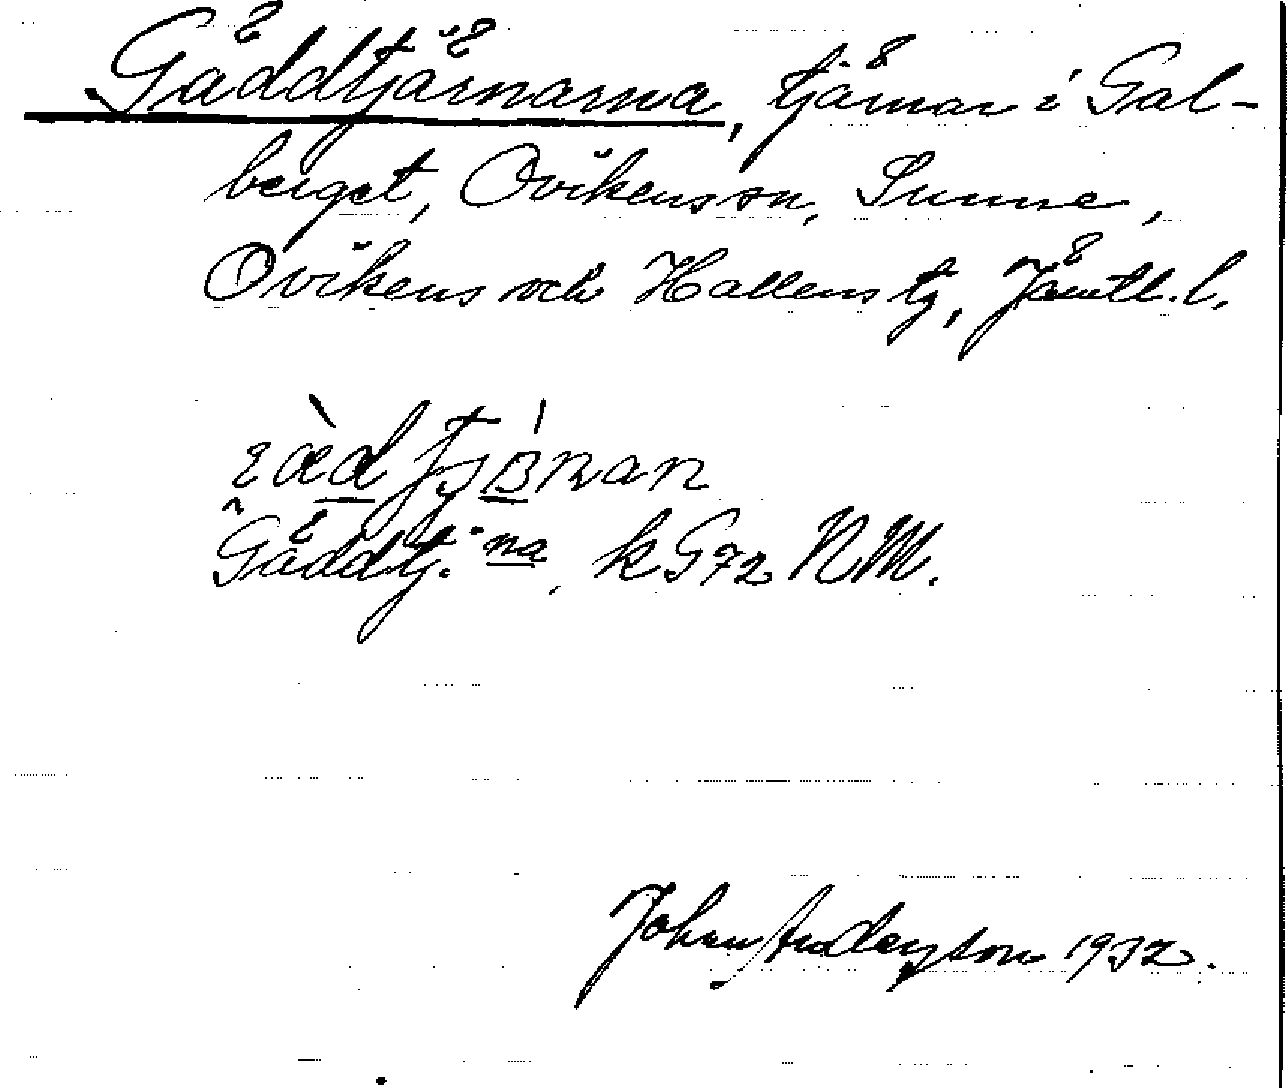 Gäddtjärnarna, tjärnar i Gal-
berget, Ovikens sn, Sunne,
Ovikens och Hallens tg, Jämtl. l.
Gäddtj. na, k G72 NM.
Johan Anderson 1932.